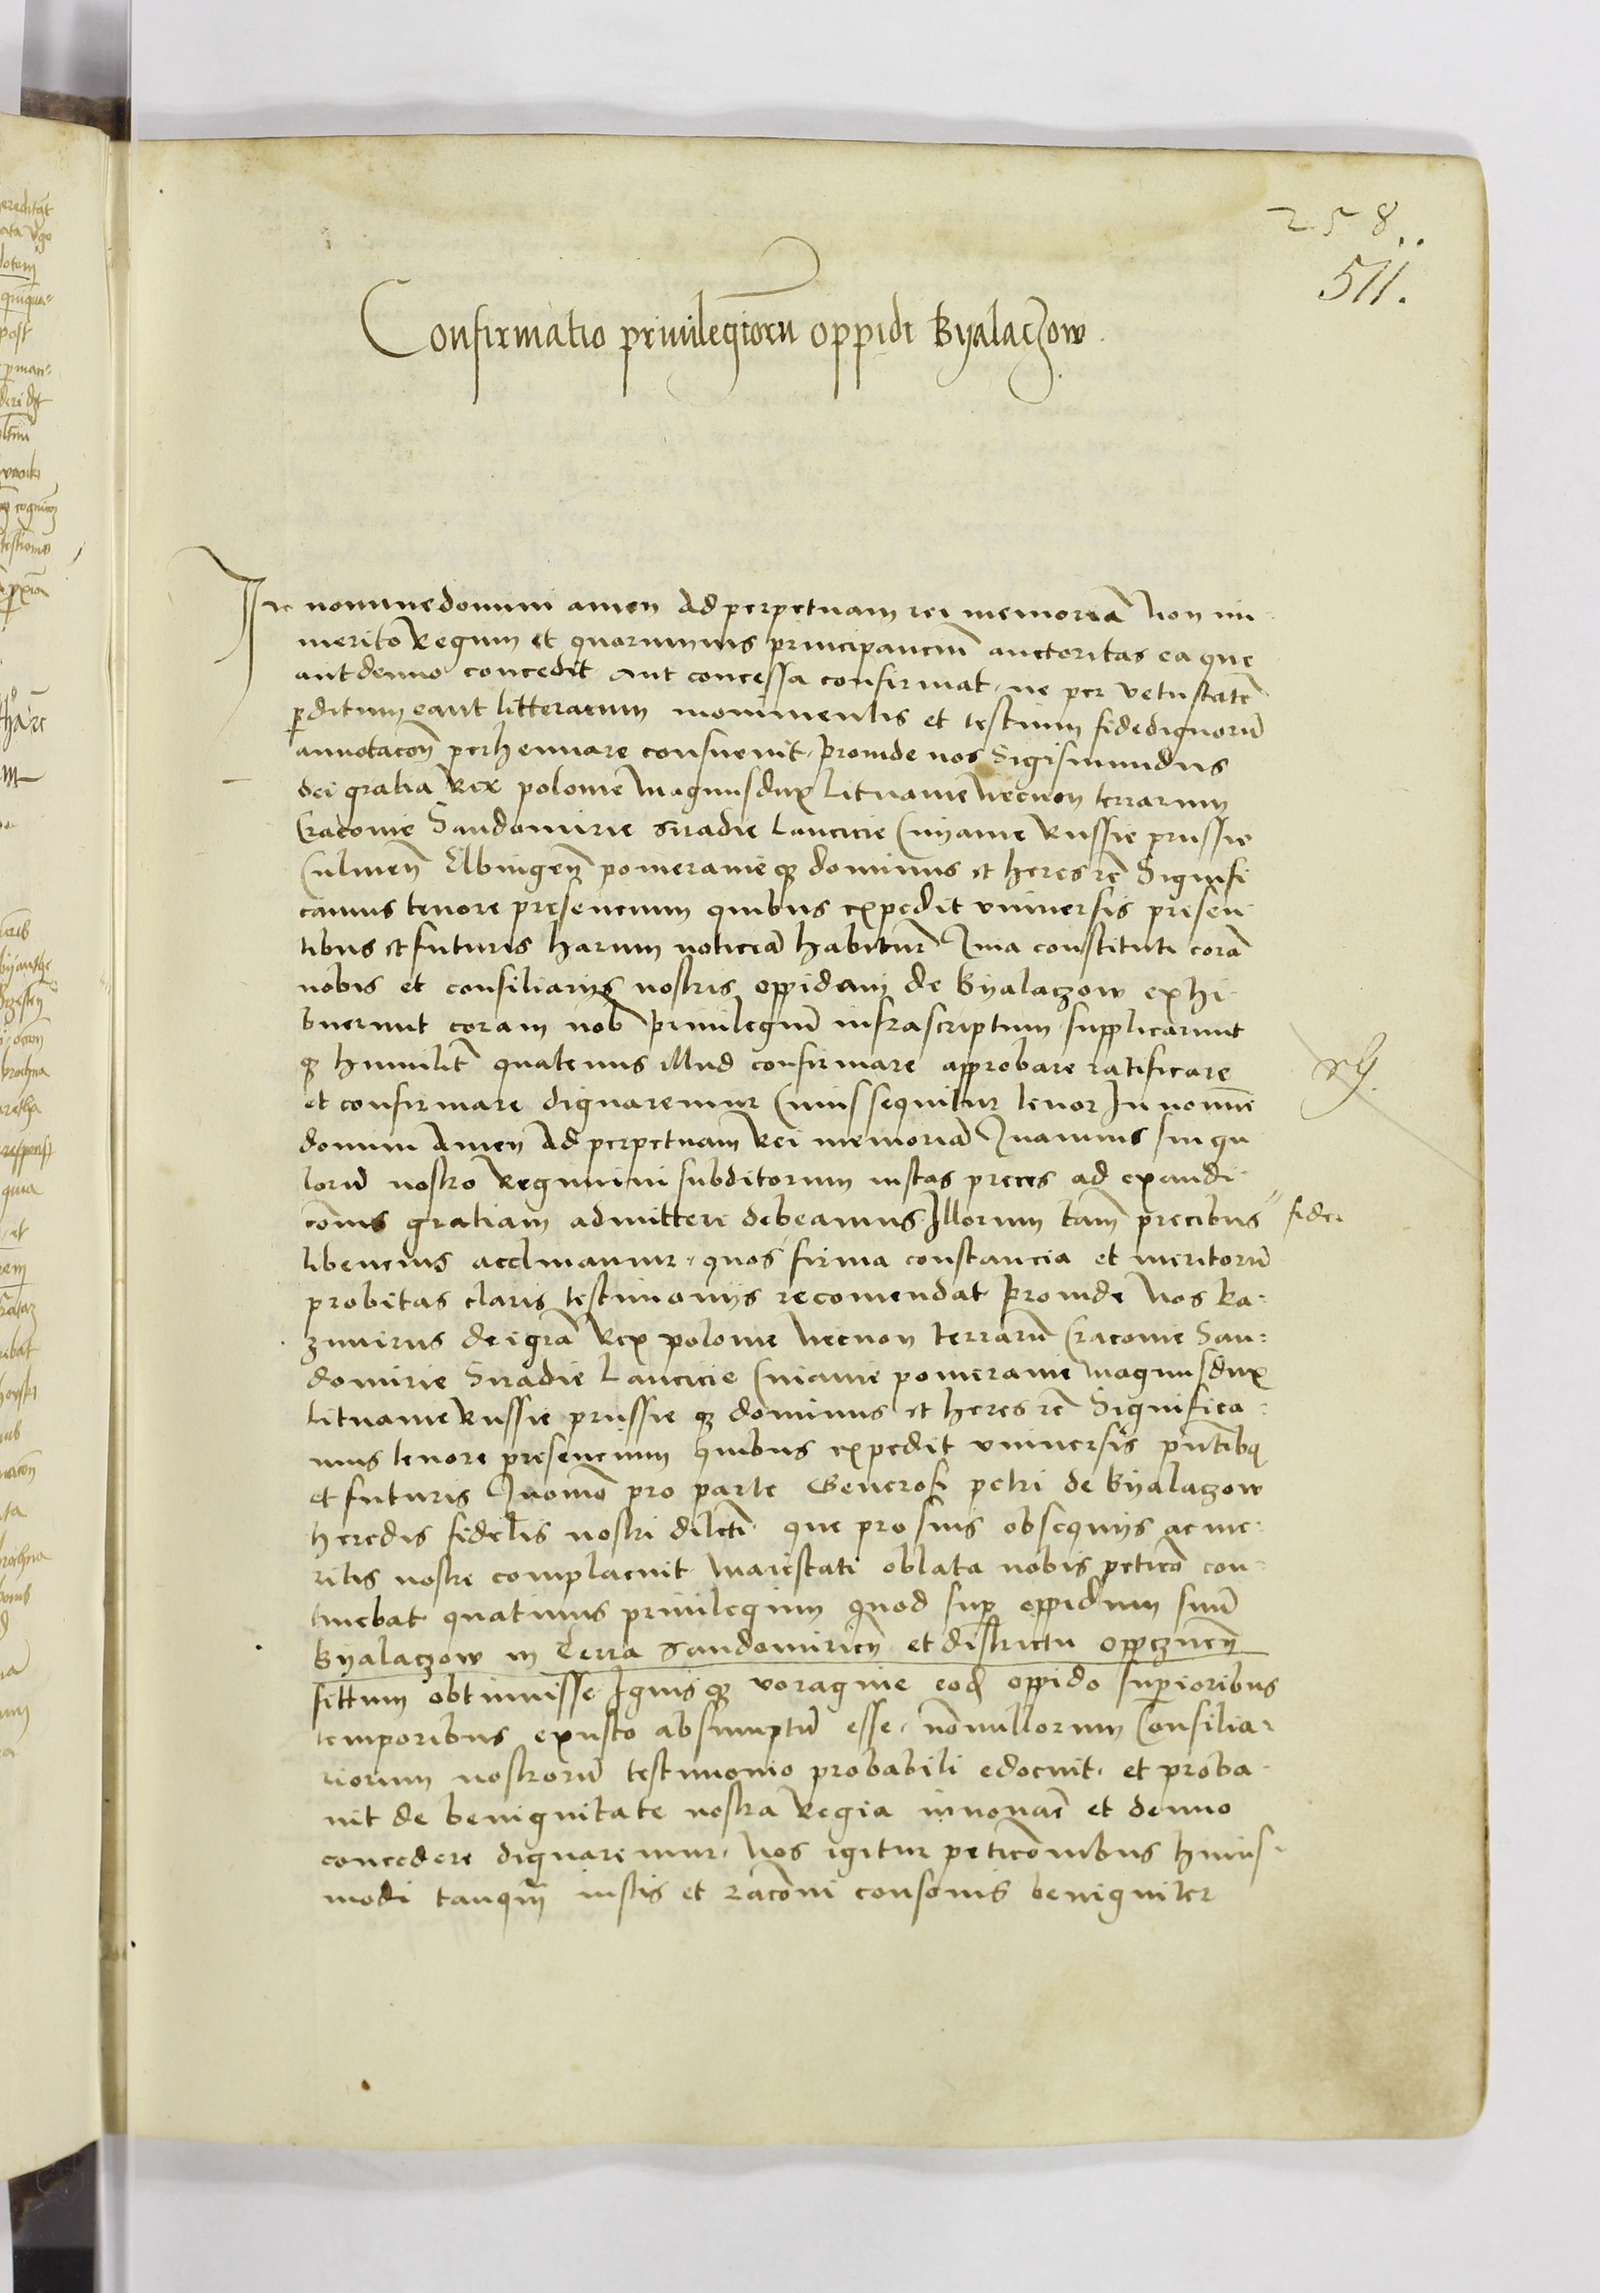 258..
511.
Confirmatio priuilegiorũ oppidi Byalaczow.
In nomine domini amen Ad perpetuam rei memoriã Non im-
merito Regum et quorumuis principanciũ auctoritas ea que
aut denuo concedit aut concessa confirmat, ne per vetustatẽ
ꝑditum eant litterarum monimentis et testium fidedignorũ
annotacoñ perhennare consueuit. Proinde nos Sigismundus
dei gratia Rex polonie Magnus dux Lituanie Necnon terrarum
Cracouie Sandomirie Siradie Lancicie Cuyauie Russie prussie
Culmeñ Elbingeñ pomeranie qȝ dominus et heres rc̃ Signifi
camus tenore presencium quibus expedit vniuersis presen-
tibus et futuris harum noticiã habiturꝭ Quia constituti corã
nobis et consiliarijs nostris oppidani de Byalaczow exhi-
buerunt coram nob priuilegiũ infrascriptum supplicarunt
qȝ humilit̃ quatenus illud confirmare approbare ratificare
et confirmare dignaremur Cuius sequitur tenor In nomine
domini Amen Ad perpetuam Rei memoriã Quamuis singu
lorũ nostro Regimini subditorum iustas preces ad exaudi-
cõnis gratiam admittere debeamus Illorum tam̃ precibus " fide
libencius acclinamur, quos firma constancia et meritorũ
probitas claris testimonijs recomendat Proinde Nos Ka-
zimirus dei grã Rex polonie Necnon terrarũ Cracouie San=
domirie Siradie Lancicie Cuiauie pomeranie Magnus dux
Lituanie Russie prussie qȝ dominus et heres rc̃ Significa=
mus tenore presencium quibus expedit vniuersis pñtibꝯ
et futuris Quomõ pro parte Generosi petri de Byalaczow
heredis fidelis nostri dilecti que pro suis obsequijs ac me=
ritis nostre complacuit Maiestati oblata nobis peticõ con=
tinebat quatinus priuilegium quod sup oppidum suũ
Byalaczow in Terra Sandomirieñ et districtu Opoczneñ
sittum obtinuisse Ignis qȝ voragine eod oppido superioribus
temporibus exusto absumptũ esse, nõnullorum Consilia=
riorum nostrorũ testimonio probabili edocuit, et proba-
uit de benignitate nostra Regia innouarẽ et denuo
concedere dignaremur, Nos igitur peticõnibus huius-
modi tanqm̃ iustis et racõni consonis benigniter